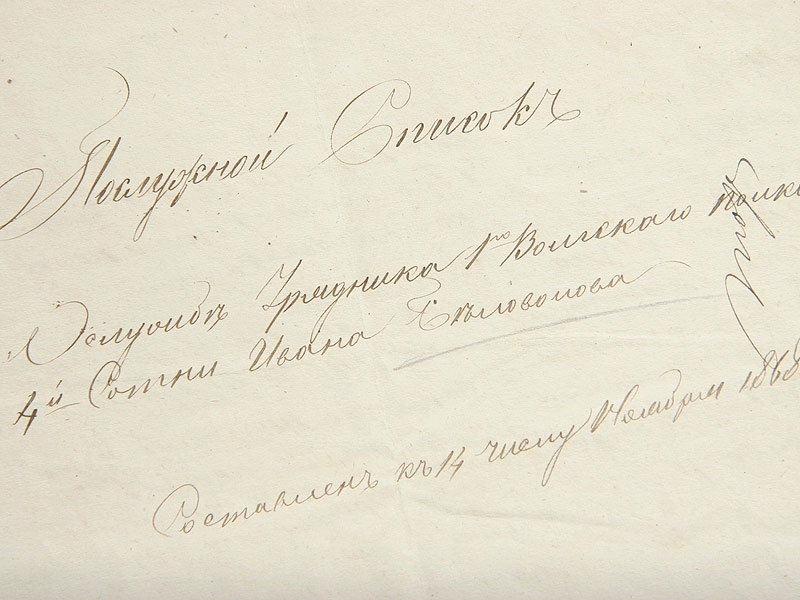 Послужной Списокъ
О службѣ Урядника 1го Волгскаго полка
4й Сотни Ивана Бѣловолова
Составленъ къ 14 числу Ноября 1868